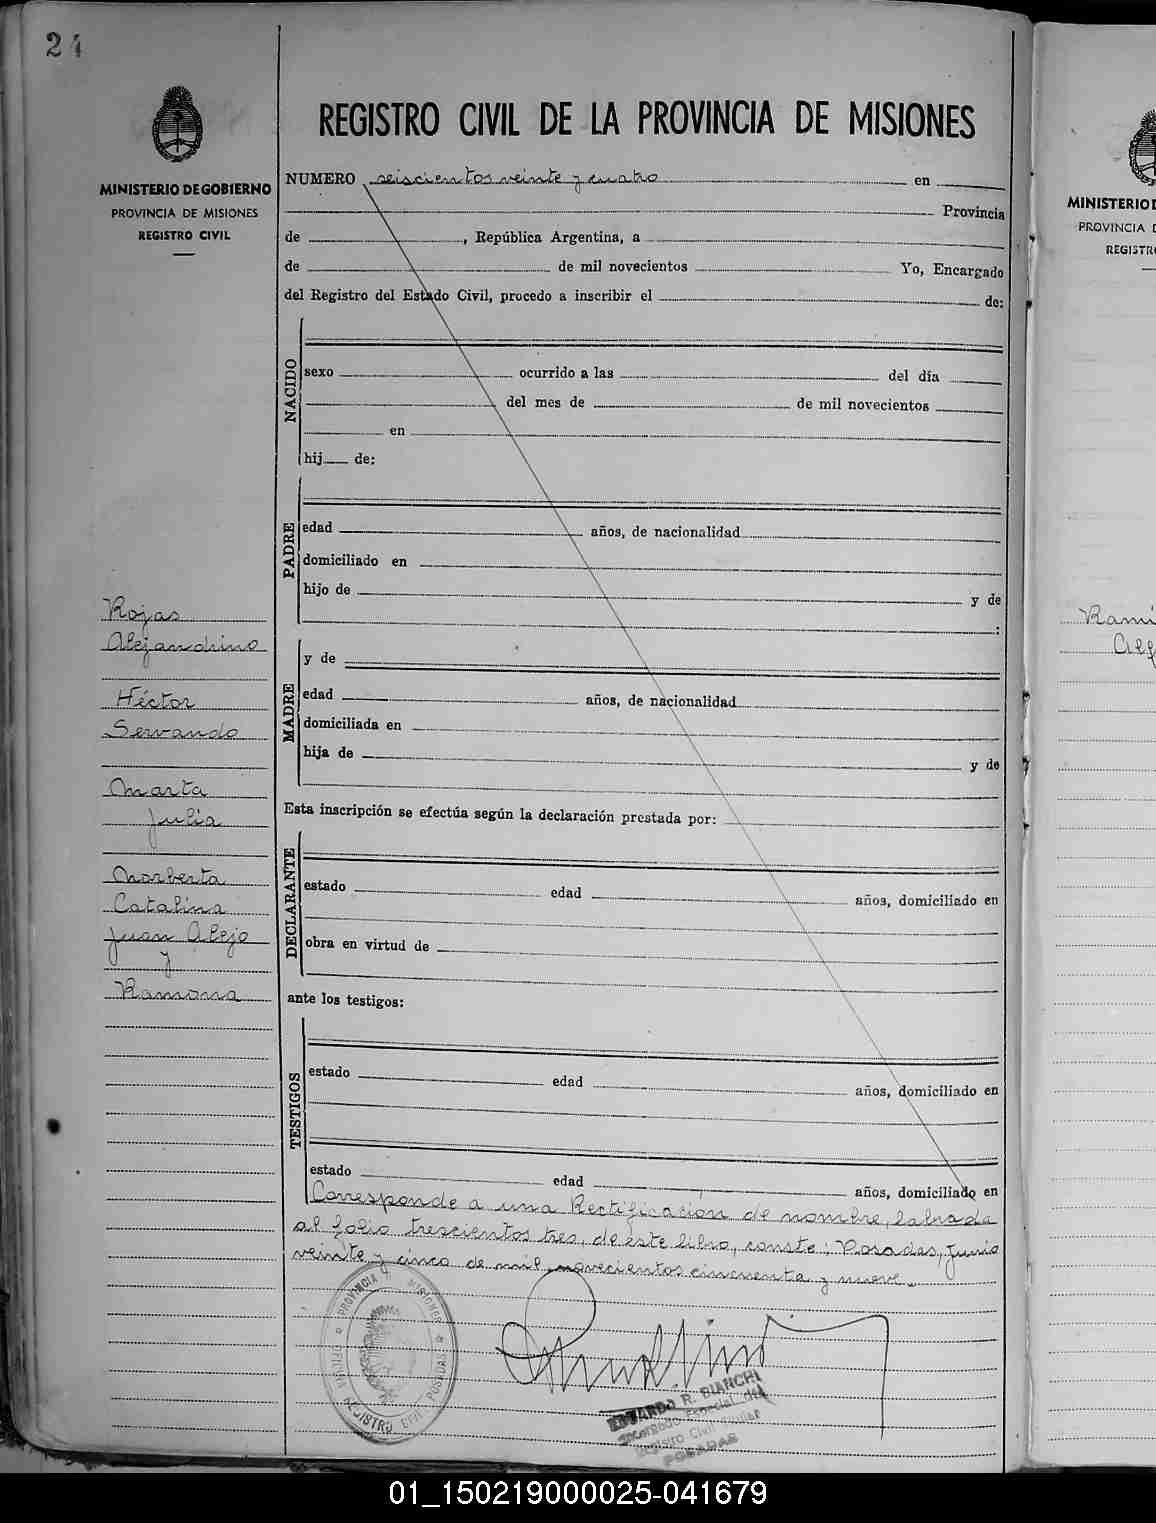 24
MINISTERIO DE GOBIERNO
PROVINCIA DE MISIONES
REGISTRO CIVIL
Rojas
Alejandrino
Héctor
Servando
Marta
Julia
Norberta
Catalina
Juan Alejo
y
Ramona
REGISTRO CIVIL DE LA PROVINCIA DE MISIONES
NUMERO seiscientos veinte y cuatro en
Provincia
de , República Argentina, a
de de mil novecientos Yo, Encargado
del Registro del Estado Civil, procedo a inscribir el de:
NACIDO
sexo ocurrido a las del día
del mes de de mil novecientos
en
hij de:
PADRE
edad años, de nacionalidad
domiciliado en
hijo de y de
:
MADRE
y de
edad años, de nacionalidad
domiciliada en
hija de y de
Esta inscripción se efectúa según la declaración prestada por:
DECLARANTE
estado edad años, domiciliado en
obra en virtud de
ante los testigos:
TESTIGOS
estado edad años, domiciliado en
estado edad años, domiciliado en
Corresponde a una Rectificación de nombre, labrada
al folio trescientos tres, de este libro, conste; Posadas, Junio
veinte y cinco de mil novecientos cincuenta y nueve.
PROVINCIA MISIONES
REGISTRO CIVIL POSADAS
EDUARDO R. BIANCHI
Encargado Especial del
Registro Civil
POSADAS
MINISTERIO D
PROVINCIA D
REGISTR
Rami
Alf
01_150219000025-041679